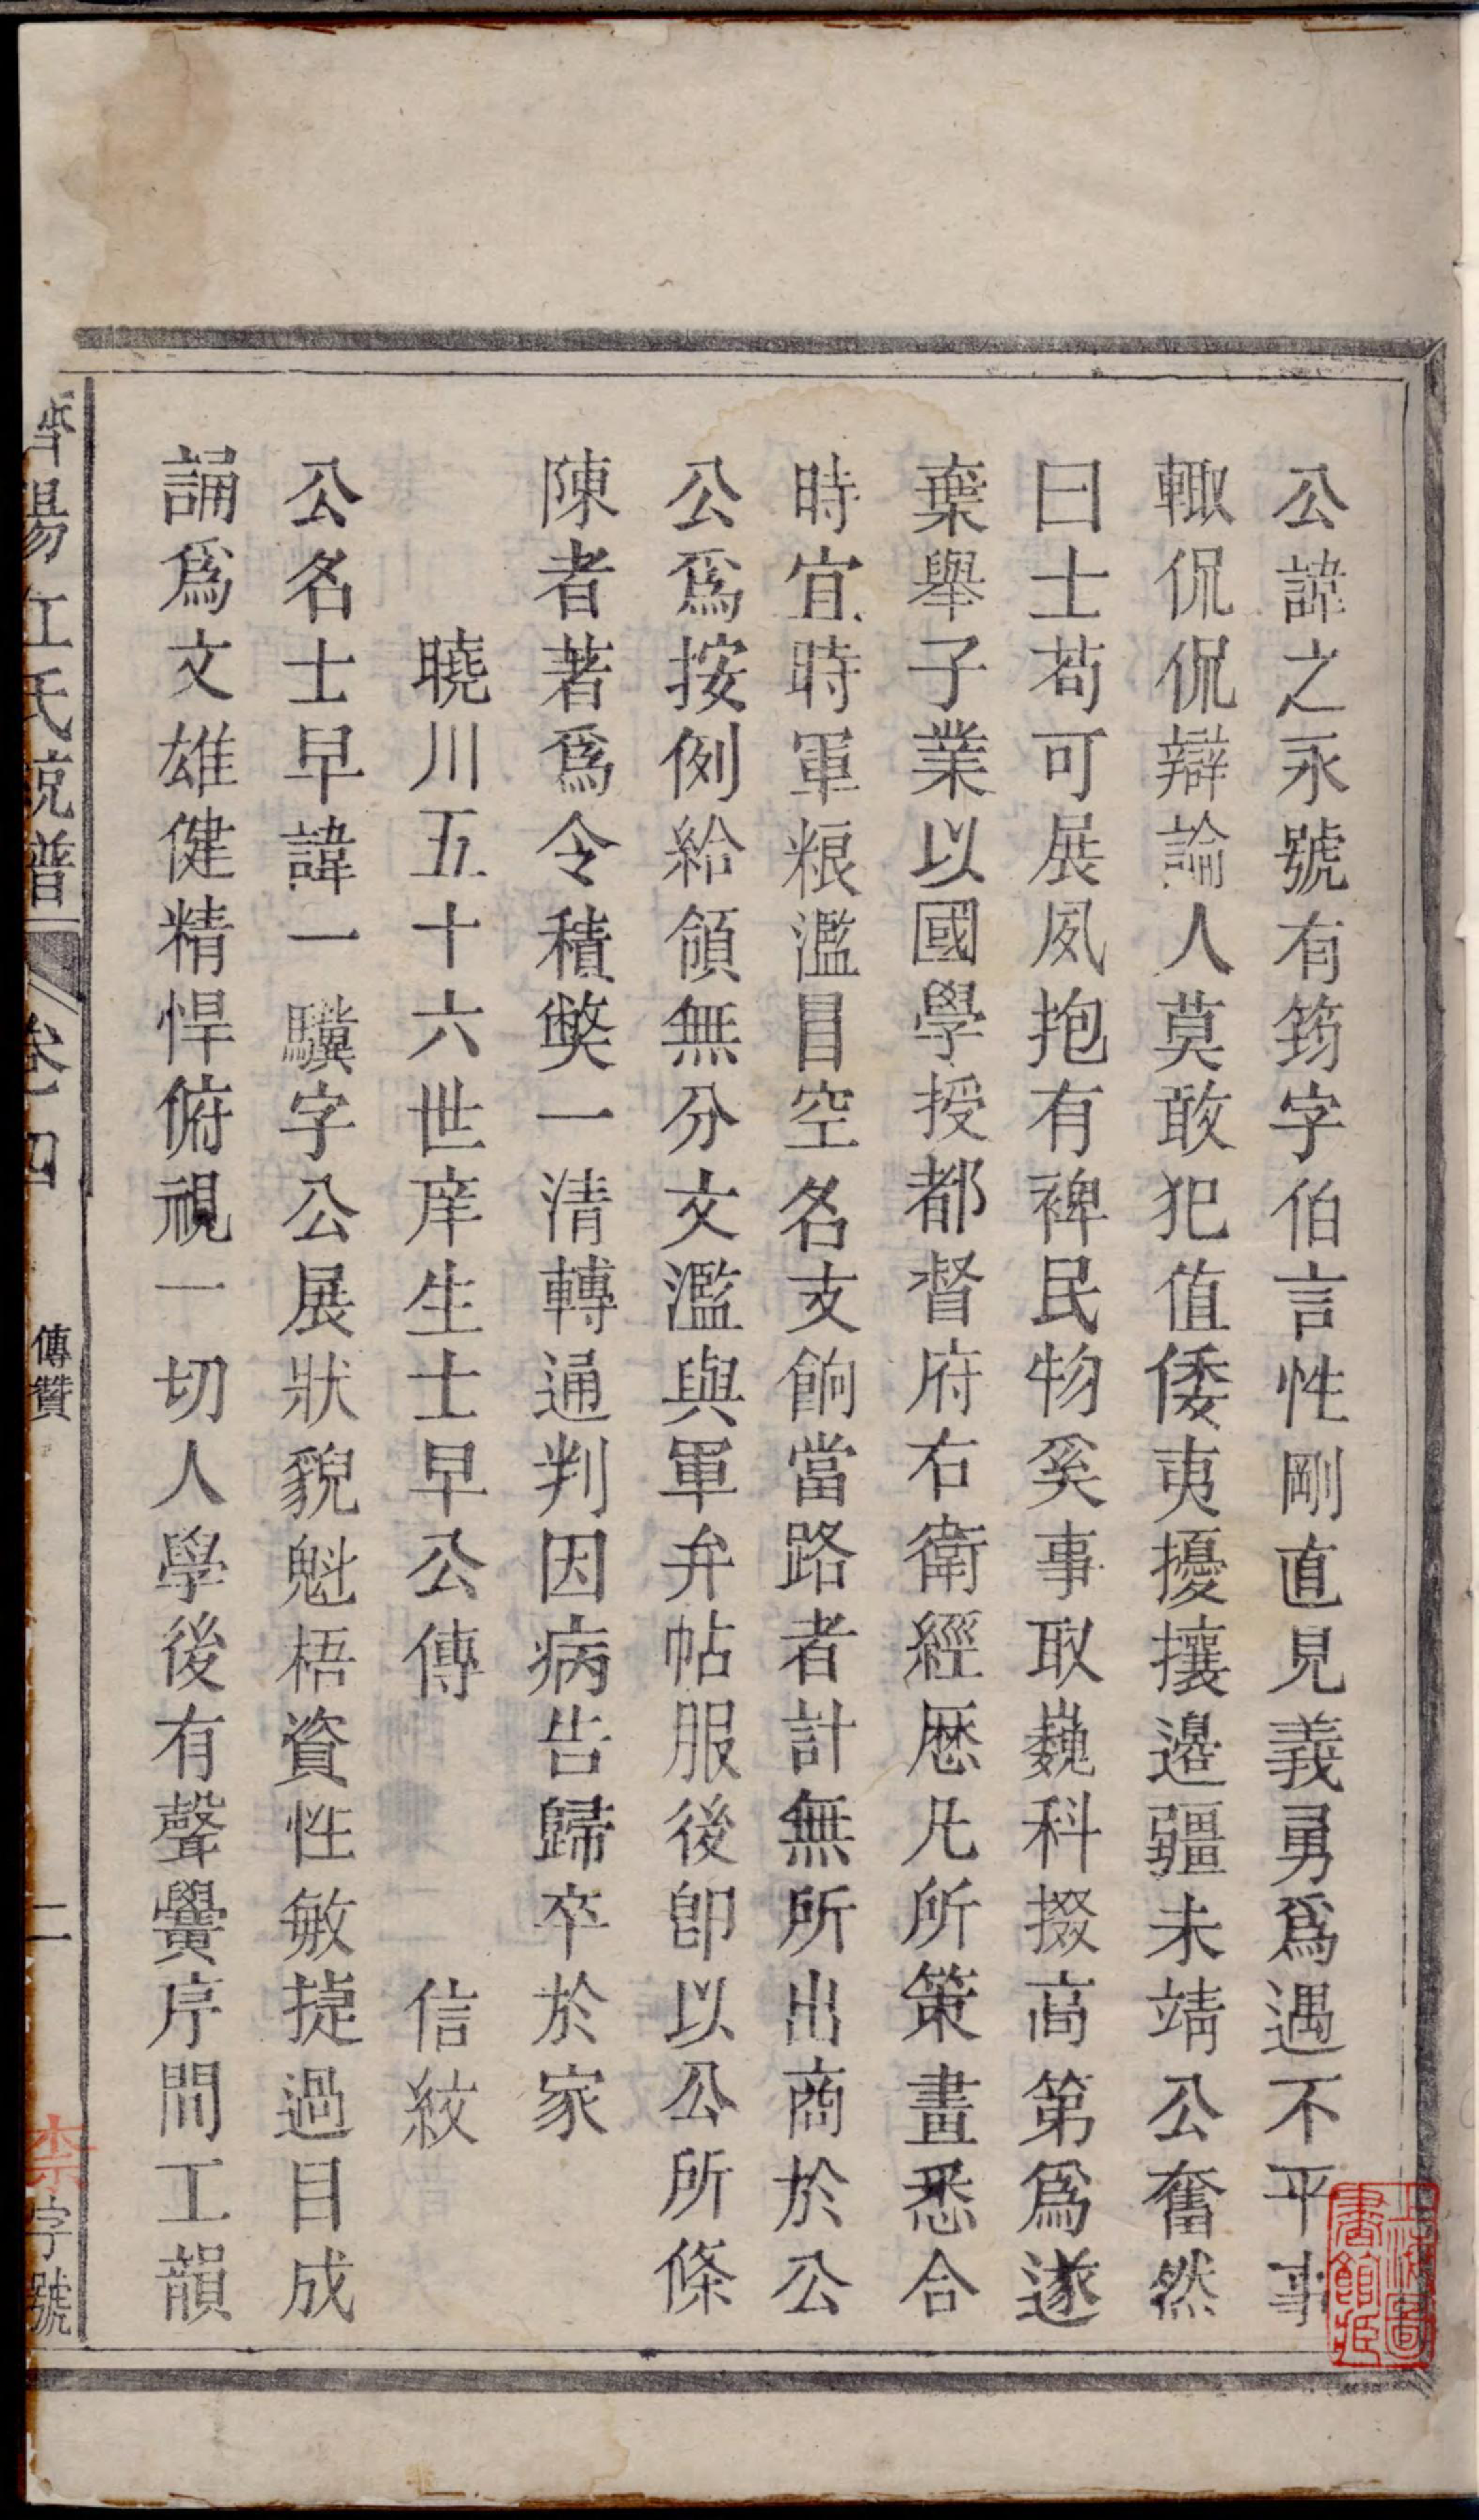 公諱之永號有筠字伯言性剛直見義勇爲遇不平事
輙侃侃辯論人莫敢犯值倭夷擾攘邉疆未靖公奮然
曰士茍可展夙抱有裨民物奚事取巍科掇高第爲遂
棄舉子業以國學授都督府右衛經厯凡所策畫悉合
時宜時軍粮濫冒空名支餉當路者計無所出商於公
公爲按例給領無分文濫與軍弁帖服後卽以公所條
陳者著爲令積獘一清轉通判因病告歸卒於家
曉川五十六世庠生士早公傳　信紋
公名士早諱一驥字公展狀貌魁梧資性敏捷過目成
誦爲文雄健精悍俯視一切人學後有聲黌序間工韻
濟陽江氏統譜
卷四
傳贊
二
字號
上海圖書館藏